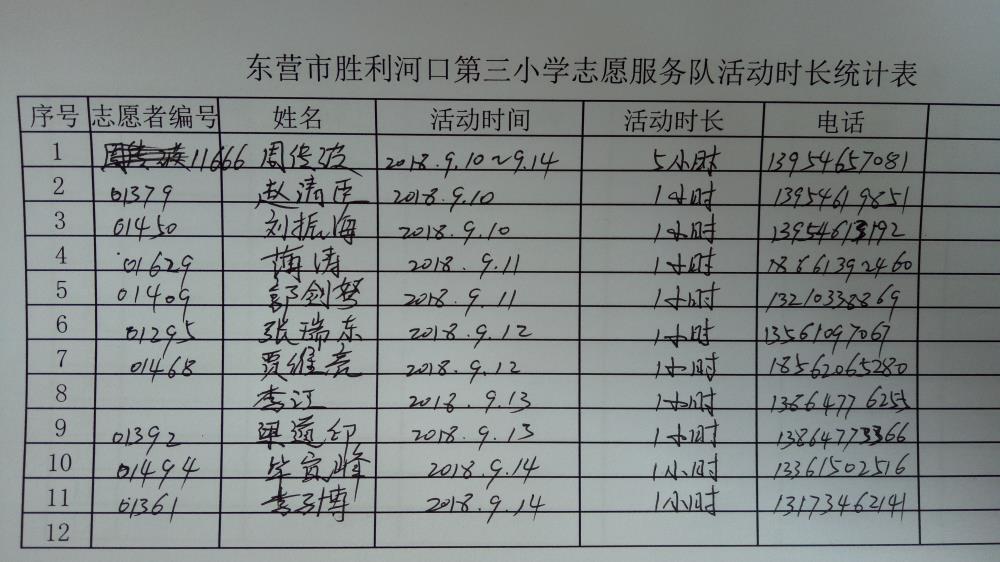 东营市胜利河口第三小学志愿服务队活动时长统计表
序号 志愿者编号 姓名 活动时间 活动时长 电话
1 11666 周传波 2018.9.10~9.14 5小时 13954657081
2 01379 赵清臣 2018.9.10 1小时 13954619851
3 01450 刘振海 2018.9.10 1小时 13954613192
4 01629 薄涛 2018.9.11 1小时 18861392460
5 01409 郭剑努 2018.9.11 1小时 13210338869
6 01295 张瑞东 2018.9.12 1小时 13561097067
7 01468 贾维亮 2018.9.12 1小时 18562065280
8 李江 2018.9.13 1小时 13864776255
9 01392 梁道印 2018.9.13 1小时 13864773366
10 01494 毕寅峰 2018.9.14 1小时 13361502516
11 01361 李引博 2018.9.14 1小时 13173462141
12